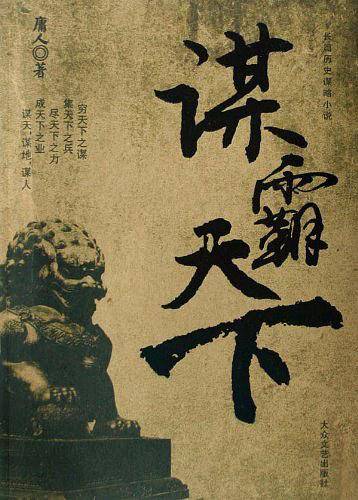 长篇历史谋略小说
谋霸天下
庸人◎著
穷天下之谋
集天下之兵
尽天下之力
成天下之业
谋天，谋地，谋人
大众文艺出版社